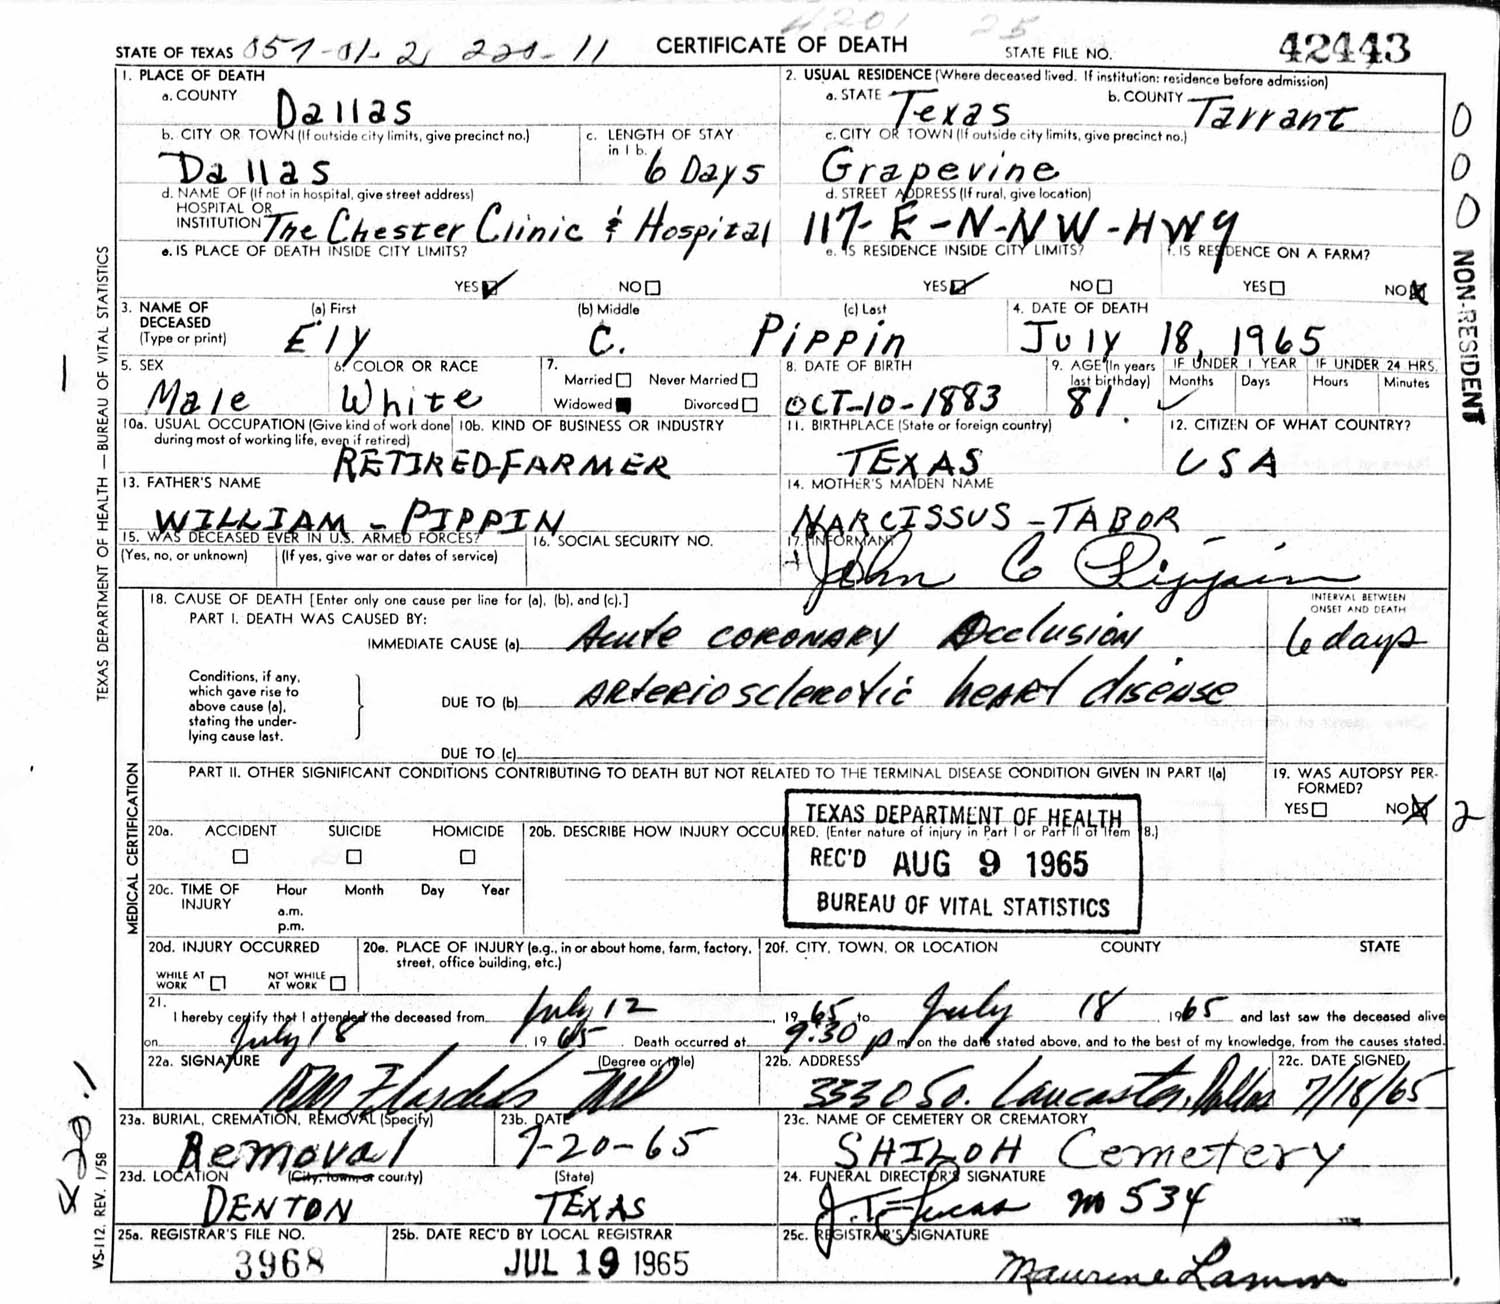 STATE OF TEXAS 057-01-2 220-11 CERTIFICATE OF DEATH STATE FILE NO. 42443
4201 25
1. PLACE OF DEATH
a. COUNTY Dallas
2. USUAL RESIDENCE (Where deceased lived. If institution: residence before admission)
a. STATE Texas b. COUNTY Tarrant
b. CITY OR TOWN (If outside city limits, give precinct no.) Dallas
c. LENGTH OF STAY in 1 b. 6 Days
c. CITY OR TOWN (If outside city limits, give precinct no.) Grapevine
d. NAME OF (If not in hospital, give street address) HOSPITAL OR INSTITUTION The Chester Clinic & Hospital
d. STREET ADDRESS (If rural, give location) 117-E-N-NW-HWY
e. IS PLACE OF DEATH INSIDE CITY LIMITS?
YES NO
e. IS RESIDENCE INSIDE CITY LIMITS?
YES NO
f. IS RESIDENCE ON A FARM?
YES NO
3. NAME OF DECEASED (Type or print)
(a) First Ely (b) Middle C. (c) Last Pippin
4. DATE OF DEATH July 18, 1965
5. SEX Male
6. COLOR OR RACE White
7. Married Never Married
Widowed Divorced
8. DATE OF BIRTH OCT-10-1883
9. AGE (In years last birthday) 81.
IF UNDER 1 YEAR Months Days
IF UNDER 24 HRS. Hours Minutes
10a. USUAL OCCUPATION (Give kind of work done during most of working life, even if retired) RETIRED-FARMER
10b. KIND OF BUSINESS OR INDUSTRY
11. BIRTHPLACE (State or foreign country) TEXAS
12. CITIZEN OF WHAT COUNTRY? USA
13. FATHER'S NAME WILLIAM - PIPPIN
14. MOTHER'S MAIDEN NAME NARCISSUS - TABOR
15. WAS DECEASED EVER IN U.S. ARMED FORCES?
(Yes, no, or unknown) (If yes, give war or dates of service)
16. SOCIAL SECURITY NO.
17. INFORMANT John C Pippin
18. CAUSE OF DEATH [Enter only one cause per line for (a), (b), and (c).]
INTERVAL BETWEEN ONSET AND DEATH
PART I. DEATH WAS CAUSED BY:
IMMEDIATE CAUSE (a) Acute CORONARY Occlusion 6 days
Conditions, if any, which gave rise to above cause (a), stating the underlying cause last.
DUE TO (b) ARTERIOSCLEROTIC HEART disease
DUE TO (c)
PART II. OTHER SIGNIFICANT CONDITIONS CONTRIBUTING TO DEATH BUT NOT RELATED TO THE TERMINAL DISEASE CONDITION GIVEN IN PART I(a)
19. WAS AUTOPSY PERFORMED?
YES NO
2
20a. ACCIDENT SUICIDE HOMICIDE
20b. DESCRIBE HOW INJURY OCCURRED. (Enter nature of injury in Part I or Part II of Item 18.)
TEXAS DEPARTMENT OF HEALTH
REC'D AUG 9 1965
BUREAU OF VITAL STATISTICS
20c. TIME OF INJURY Hour Month Day Year
a.m.
p.m.
20d. INJURY OCCURRED
WHILE AT WORK NOT WHILE AT WORK
20e. PLACE OF INJURY (e.g., in or about home, farm, factory, street, office building, etc.)
20f. CITY, TOWN, OR LOCATION COUNTY STATE
21.
I hereby certify that I attended the deceased from July 12, 1965 to July 18 1965 and last saw the deceased alive
on July 18, 1965. Death occurred at 9:30 p m, on the date stated above, and to the best of my knowledge, from the causes stated.
22a. SIGNATURE (Degree or title) MD
22b. ADDRESS 3330 So. Lancaster, Dallas
22c. DATE SIGNED 7/18/65
23a. BURIAL, CREMATION, REMOVAL (Specify) Removal
23b. DATE 7-20-65
23c. NAME OF CEMETERY OR CREMATORY SHILOH Cemetery
23d. LOCATION (City, town, or county) DENTON (State) TEXAS
24. FUNERAL DIRECTOR'S SIGNATURE J.T. Lucas M534
25a. REGISTRAR'S FILE NO. 3968
25b. DATE REC'D BY LOCAL REGISTRAR JUL 19 1965
25c. REGISTRAR'S SIGNATURE Maurine Lamm
TEXAS DEPARTMENT OF HEALTH — BUREAU OF VITAL STATISTICS
MEDICAL CERTIFICATION
VS-112, REV. 1/58
420.1
0 0 0 NON-RESIDENT